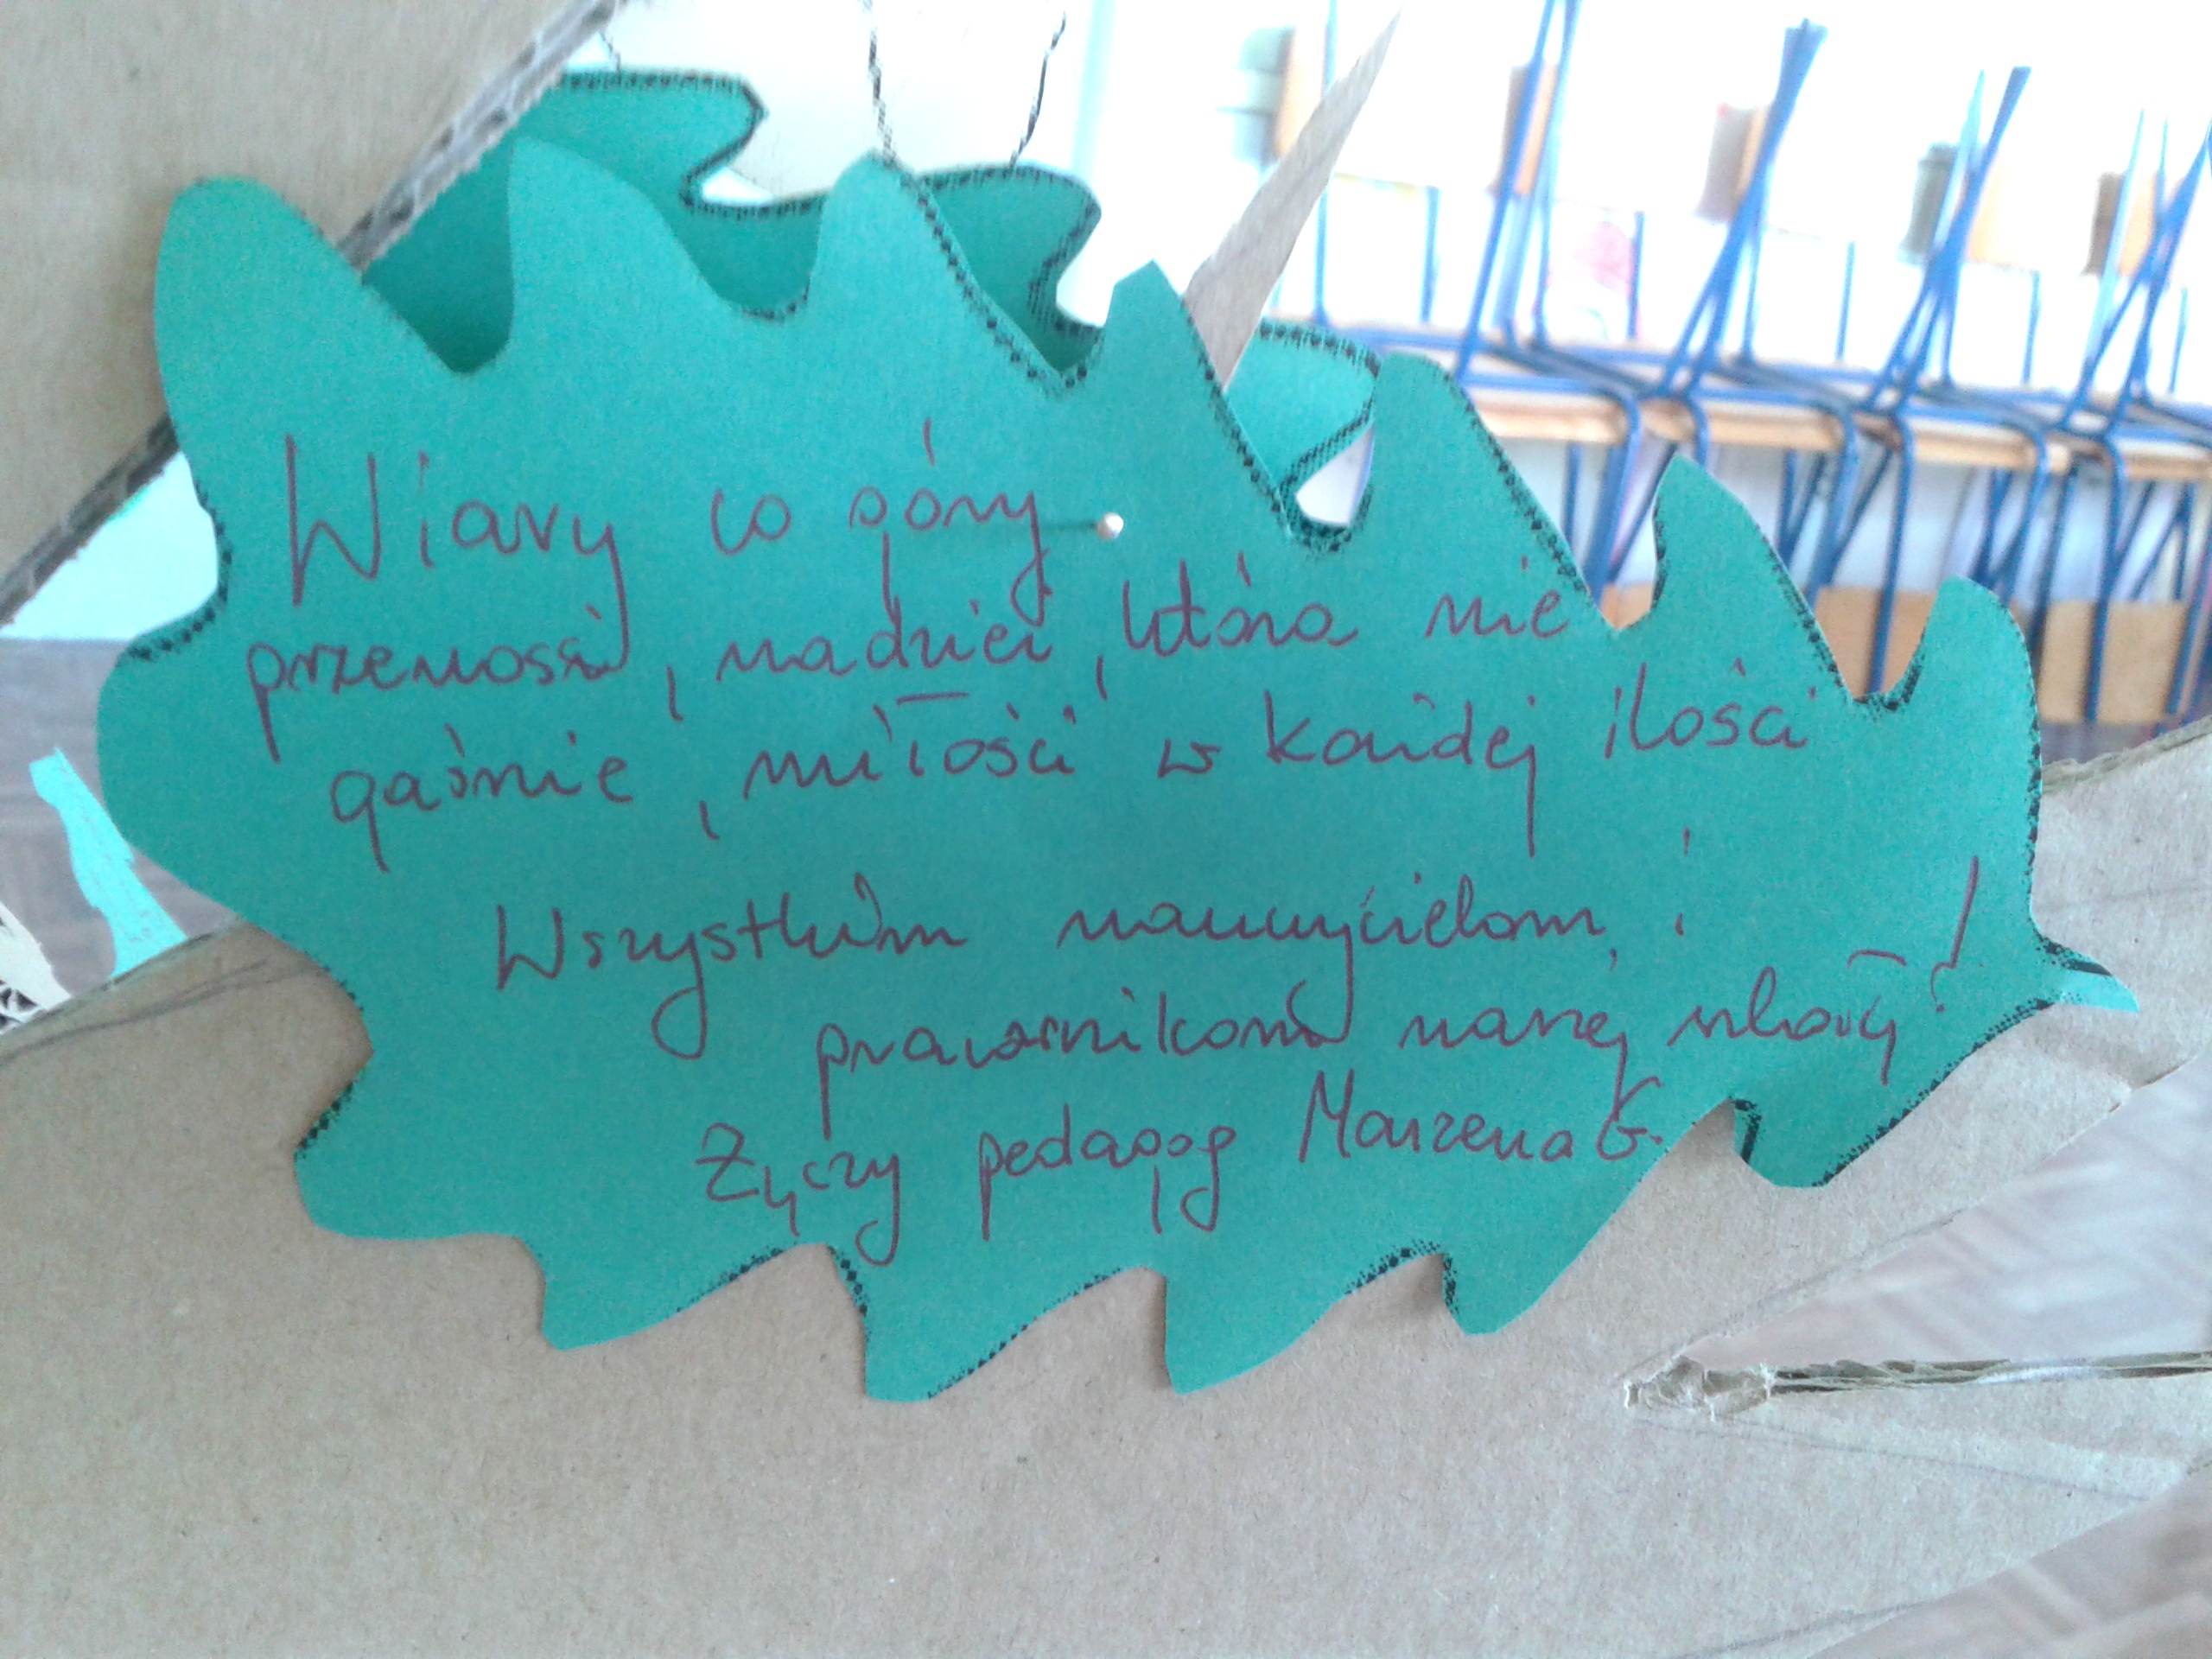 Wiary co góry
przenosi, nadziei, która nie
gaśnie, miłości w każdej ilości
Wszystkim nauczycielom i
pracownikom naszej szkoły!
Życzy pedagog Marzena G.